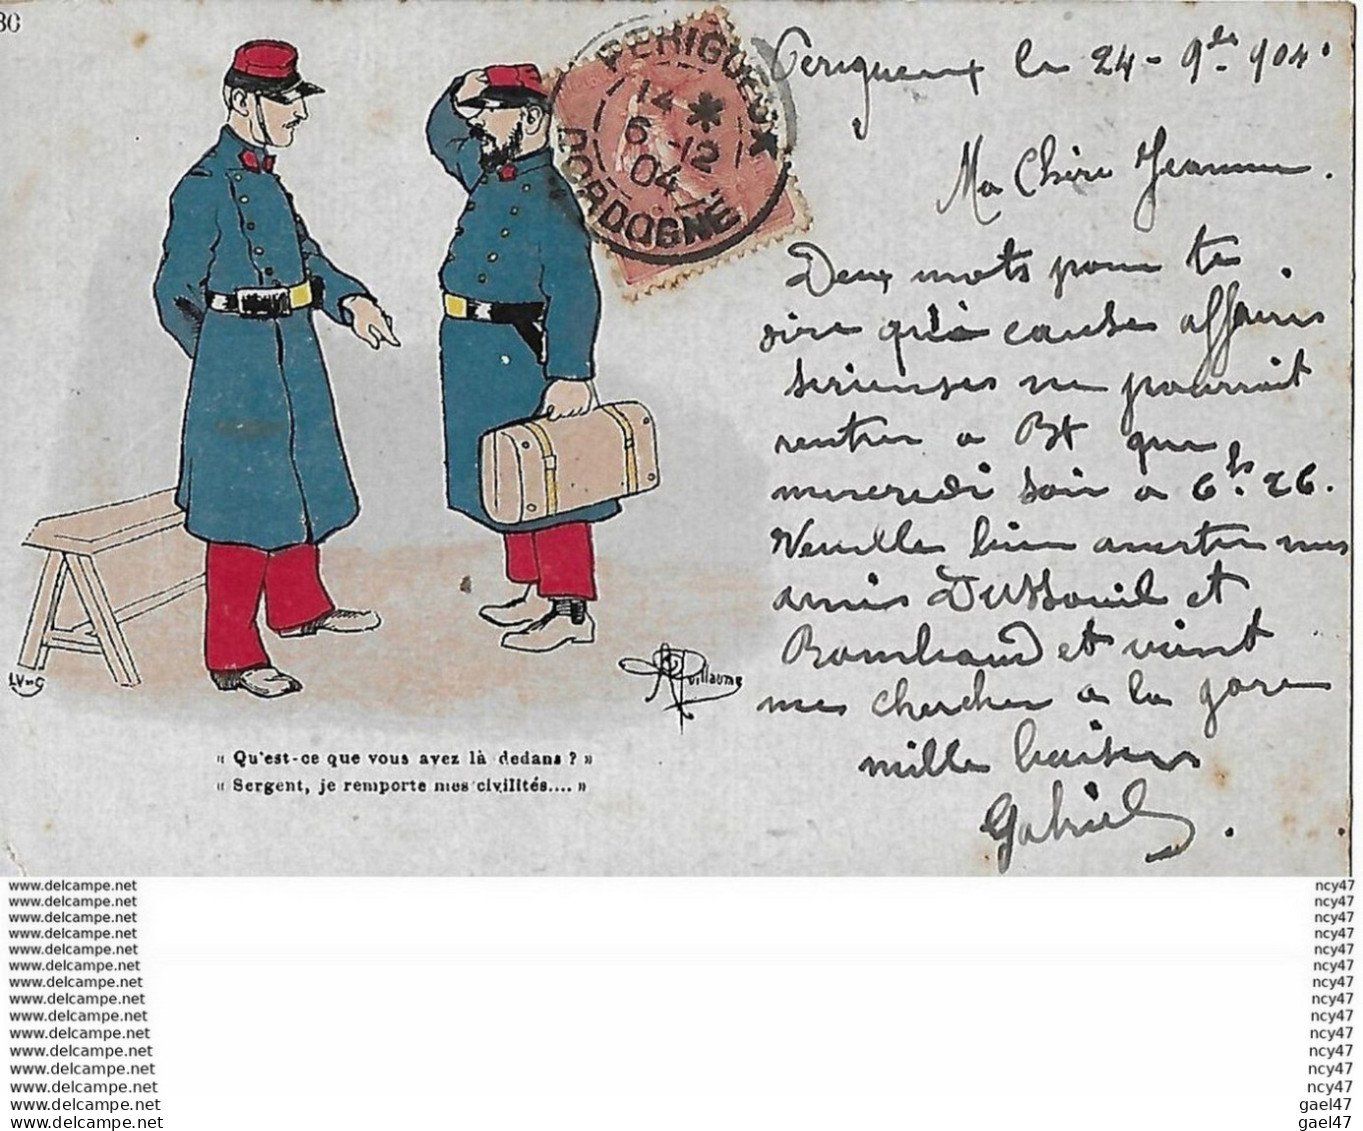 30
PERIGUEUX
14 *
6 -12
04
DORDOGNE
Perigueux le 24 - 9bre 904
Ma Chère Jeanne.
Deux mots pour te
dire qu'à cause affaires
serieuses ne pourrait
rentrer a Bx que
mercredi soir a 6h. 26.
Veuille bien avertir mes
amis Dussouil et
Rambaud et vient
mes chercher a la gare
mille baisers
Gabriel.
LV & C
A Guillaume
« Qu'est-ce que vous avez là dedans ? »
« Sergent, je remporte mes civilités.... »
www.delcampe.net ncy47
www.delcampe.net ncy47
www.delcampe.net ncy47
www.delcampe.net ncy47
www.delcampe.net ncy47
www.delcampe.net ncy47
www.delcampe.net ncy47
www.delcampe.net ncy47
www.delcampe.net ncy47
www.delcampe.net ncy47
www.delcampe.net ncy47
www.delcampe.net ncy47
www.delcampe.net ncy47
www.delcampe.net gael47
www.delcampe.net gael47